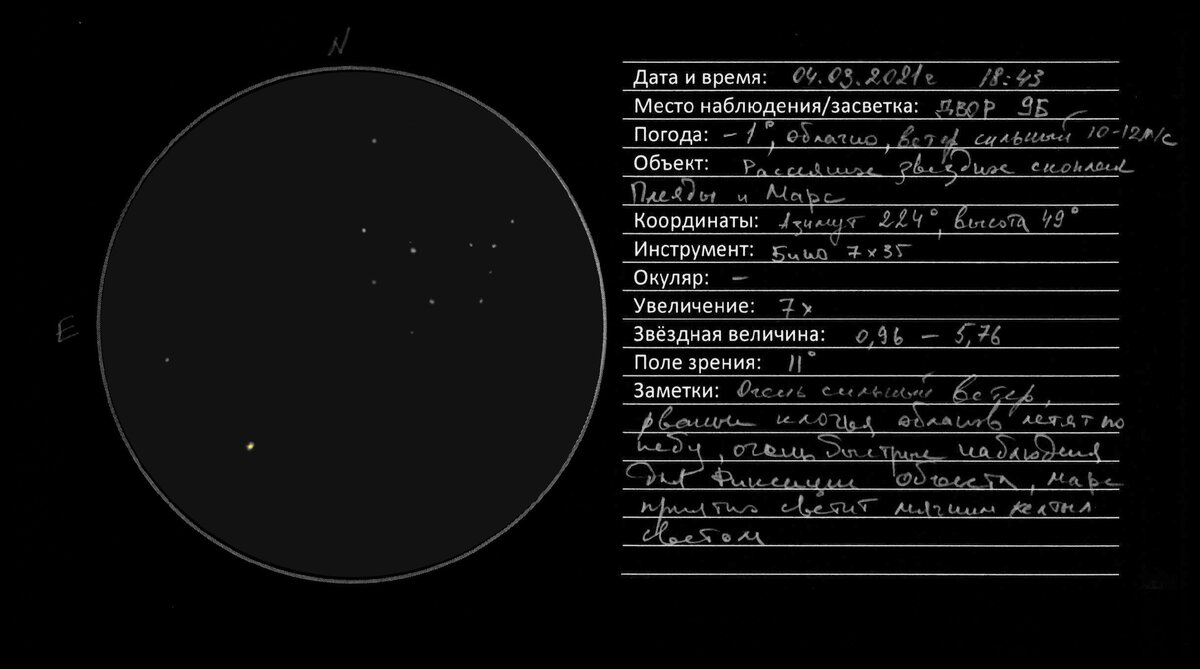 N
E
Дата и время: 04.03.2021г 18:43
Место наблюдения/засветка: ДВОР 9Б
Погода: -1°, облачно, ветер сильный 10-12м/с
Объект: Рассеяное звездное скопление
Плеяды и Марс
Координаты: Азимут 224°, высота 49°
Инструмент: Бино 7x35
Окуляр: -
Увеличение: 7x
Звёздная величина: 0,96 - 5,76
Поле зрения: 11°
Заметки: Очень сильный ветер,
рваные клочья облаков летят по
небу, очень быстрые наблюдения
для фиксации объекта, марс
приятно светит мягким желтым
светом